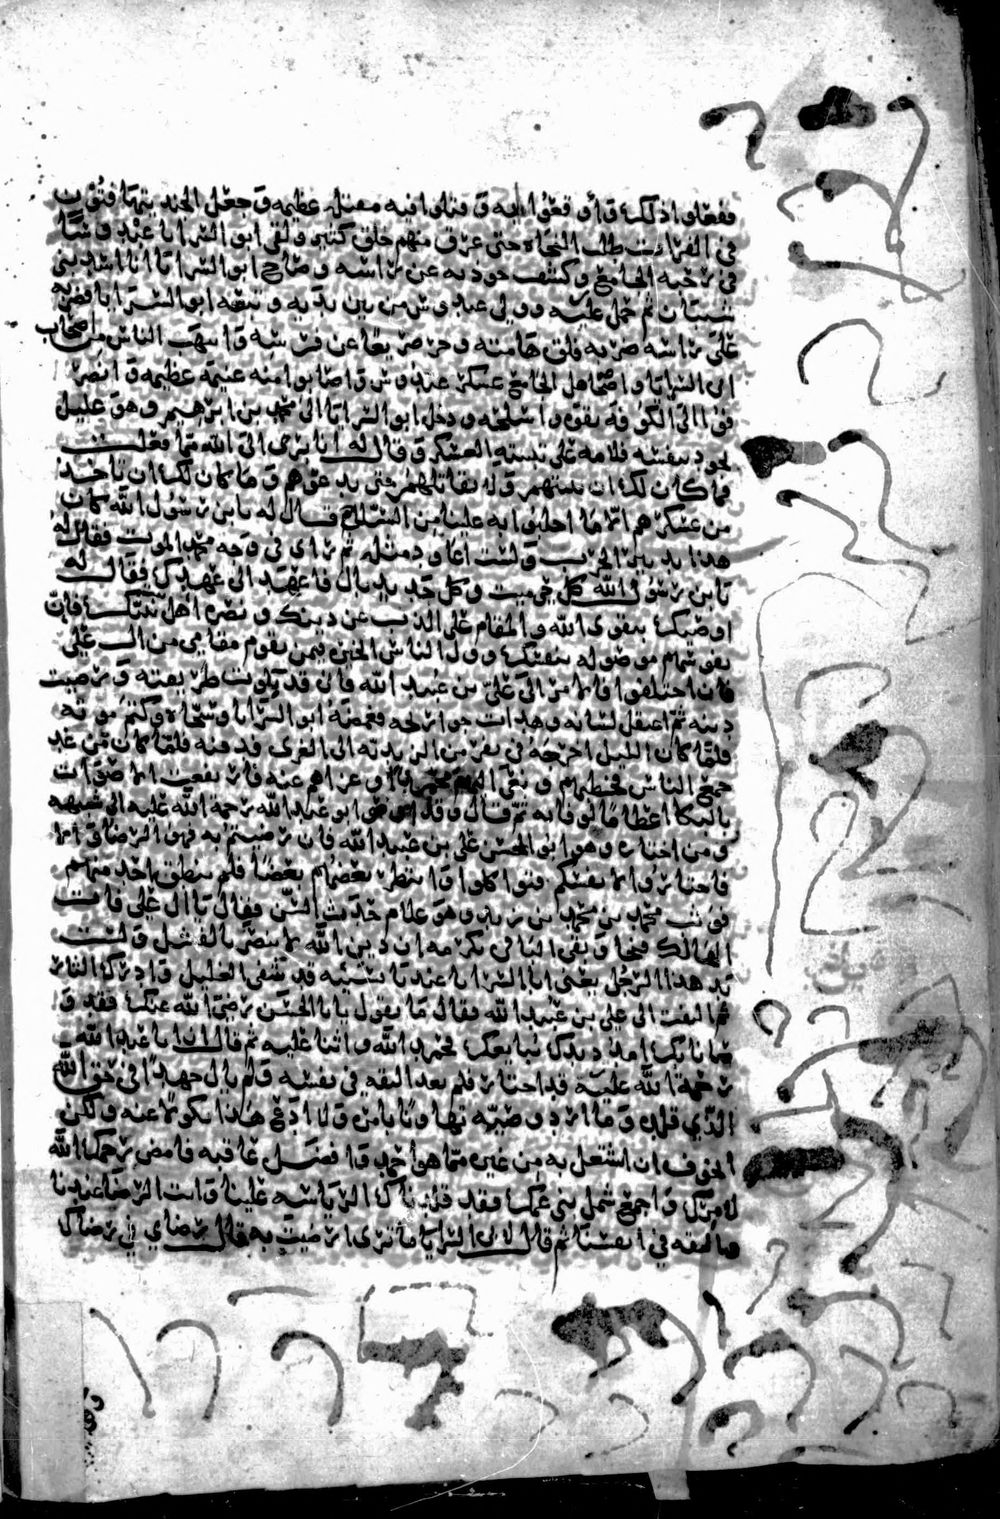 ففعلوا ذلك وأوقعوا به وقتلوا فيه مقتله عظيمه وجعل الجند يتهافتون
في الفرات طلب النجاه حتى غرق منهم خلق كثير ولقى ابو السرايا عبدوسًا
في رحبه الجامع وكشف خوذته عن راسه وصاح ابو السرايا انا اسد بني
شيبان ثم حمل عليه وولى عبدوس من بين يديه وتبعه ابو السرايا فضربه
على راسه ضربه فلق هامته وخر صريعا عن فرسه وانتهب الناس من اصحاب
ابي السرايا واهل الجامع عسكر عبدوس واصابوا منه غنيمه عظيمه وانصر
فوا الى الكوفه بقوه واسلحه ودخل ابو السرايا الى محمد بن ابرهيم وهو عليل
يجود بنفسه فلامه على تبييته العسكر وقال له انا ابرى الى الله مما فعلت
فما كان لك ان تبيتهم ولا تقاتلهم حتى تدعوهم وما كان لك ان تاخذ
من عسكرهم الا ما اجلبوا به علينا من السلاح فقال له يابن رسول الله كان
هذا تدبير الحرب ولست اعاود مثله ثم راى في وجه محمد الموت فقال له
يابن رسول الله كل حي ميت وكل جديد بال فاعهد الى عهدك فقال له
اوصيك بتقوى الله والمقام على الذب عن دينك ونصره اهل بيتك فان
نفوسهم موصوله بنفسك وول الناس الخيره فيمن يقوم مقامي من ال علي
فان اختلفوا فالامر الى علي بن عبيد الله فاني قد بلوت طريقته ورضيت
دينه ثم اعتقل لسانه وهدات جوارحه فغمضه ابو السرايا وسجاه وكتم موته
فلما كان الليل اخرجه في نفر من الزيديه الى الغري فدفنه فلما كان من غد
جمع الناس فخطبهم ونعى اليهم محمد وعزاهم عنه فارتفعت الاصوات
بالبكا اعظامًا لوفاته ثم قال وقد اوصى ابو عبد الله رحمة الله عليه الى شبيهه
ومن اختاره وهو ابو الحسن علي بن عبيد الله فان رضيتم به فهو الرضا والا
فاختاروا لانفسكم فتواكلوا وانتظر بعضهم بعضًا فلم ينطق احد منهم
فوثب محمد بن محمد بن زيد وهو غلام حدث السن فقال يا ال علي فات
الهالك فنجا وبقي الثاني بكرمه ان دين الله لا ينصر بالفشل وليست
يد هذا الرجل يعنى ابا السرايا عندنا بسيئه قد شفى الغليل وادرك الثار
ثم التفت الى علي بن عبيد الله فقال ما تقول يا ابا الحسن رضي الله عنك فقد و
صانا بك امدد يدك نبايعك فحمد الله واثنا عليه ثم قال ان ابا عبد الله
رحمة الله عليه قد اختار فلم يعد الثقه في نفسه ولم يال جهدًا في حق الله
الذي قلده وما ارد وصيته تهاونًا بامره ولا ادع هذا نكولا عنه ولكن
اتخوف ان اشتغل به عن غيره مما هو احمد وافضل عاقبه فامض رحمك الله
لامرك واجمع شمل بني عمك فقد قلدناك الرياسه علينا وانت الرضا عندنا
والثقه في انفسنا ثم قال لابي السرايا ما ترى ارضيت به قال رضاي في رضاك